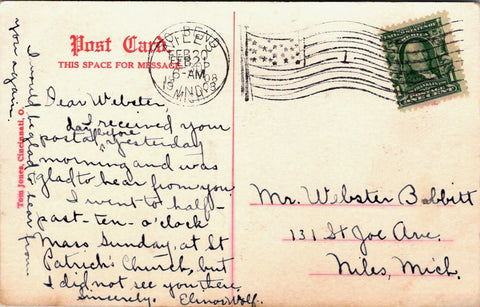 Post Card
THIS SPACE FOR MESSAGE
FEB 20
6-AM
1908
IND.
1
Dear Webster,
I received your
day before
postal yesterday
morning and was
glad to hear from you.
I went to half-
past-ten-o'clock
Mass Sunday, at St
Patrick's Church, but
I did not see you there.
Sincerely, Elinor Wolf.
I would be glad to hear from
you again.
Tom Jones, Cincinnati, O.
Mr. Webster Babbitt
131 St Joe Ave.
Niles, Mich.